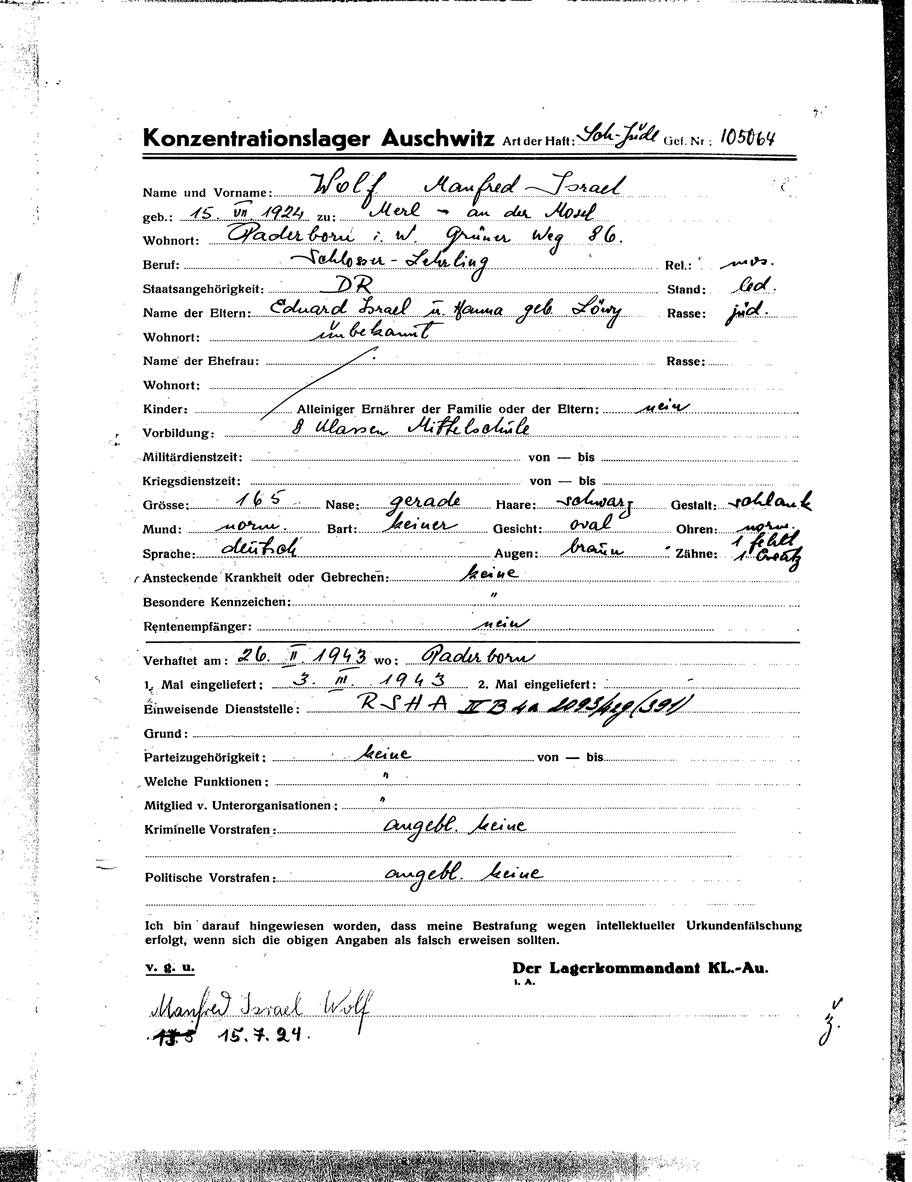 Konzentrationslager Auschwitz Art der Haft: Sch-Jude Gef. Nr: 105064
Name und Vorname: Wolf Manfred Israel
geb.: 15. VII 1924 zu: Merl - an der Mosel
Wohnort: Paderborn i. W. Grüner Weg 86.
Beruf: Schlosser-Lehrling Rel.: mos.
Staatsangehörigkeit: DR Stand: led.
Name der Eltern: Eduard Israel u. Hanna geb. Löwy Rasse: jüd.
Wohnort: unbekannt
Name der Ehefrau: Rasse:
Wohnort:
Kinder: Alleiniger Ernährer der Familie oder der Eltern: nein
Vorbildung: 8 Klassen Mittelschule
Militärdienstzeit: von — bis
Kriegsdienstzeit: von — bis
Grösse: 165 Nase: gerade Haare: schwarz Gestalt: schlank
Mund: norm. Bart: keiner Gesicht: oval Ohren: norm.
Sprache: deutsch Augen: braun Zähne: 1 fehlt 1 Ersatz
Ansteckende Krankheit oder Gebrechen: keine
Besondere Kennzeichen: "
Rentenempfänger: nein
Verhaftet am: 26. II. 1943 wo: Paderborn
1. Mal eingeliefert: 3. III. 1943 2. Mal eingeliefert: -
Einweisende Dienststelle: RSHA IV B 4a 2093/42g (391)
Grund:
Parteizugehörigkeit: keine von — bis
Welche Funktionen: "
Mitglied v. Unterorganisationen: "
Kriminelle Vorstrafen: angebl. keine
Politische Vorstrafen: angebl. keine
Ich bin darauf hingewiesen worden, dass meine Bestrafung wegen intellektueller Urkundenfälschung
erfolgt, wenn sich die obigen Angaben als falsch erweisen sollten.
v. g. u. Der Lagerkommandant KL.-Au.
I. A.
Manfred Israel Wolf
15.7.24.